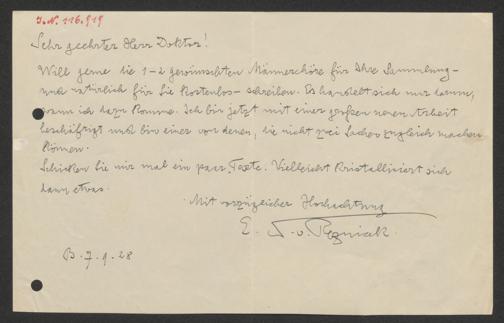 I.N. 116.919
Sehr geehrter Herr Doktor!
Will gerne die 1-2 gewünschten Männerchöre für Ihre Sammlung -
und natürlich für Sie kostenlos - schreiben. Es handelt sich nur darum,
wann ich dazu komme. Ich bin jetzt mit einer großen neuen Arbeit
beschäftigt und bin einer von denen, die nicht zwei Sachen zugleich machen
können.
Schicken Sie mir mal ein paar Texte. Vielleicht kristallisiert sich
dann etwas.
Mit vorzüglicher Hochachtung
E. N. v. Reznicek.
B. 7. 9. 28